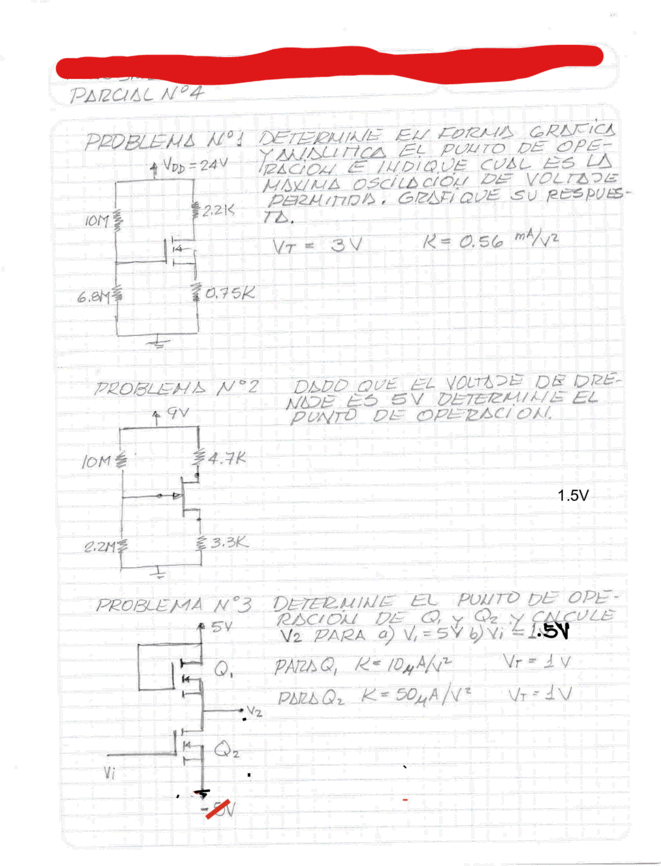 PARCIAL Nº4
PROBLEMA Nº1 DETERMINE EN FORMA GRAFICA
Y ANALITICA EL PUNTO DE OPE-
RACION E INDIQUE CUAL ES LA
MAXIMA OSCILACION DE VOLTAJE
PERMITIDA. GRAFIQUE SU RESPUES-
TA.
VDD = 24V
10M
2.2K
VT = 3V K = 0.56 mA/V²
6.8M
0.75K
PROBLEMA Nº2 DADO QUE EL VOLTAJE DE DRE-
NAJE ES 5V DETERMINE EL
PUNTO DE OPERACION.
9V
10M
4.7K
1.5V
2.2M
3.3K
PROBLEMA Nº3 DETERMINE EL PUNTO DE OPE-
RACION DE Q1 Y Q2 Y CALCULE
V2 PARA a) Vi = 5V b) Vi = 1.5V
5V
Q1
PARA Q1 K = 10μA/V² VT = 1V
PARA Q2 K = 50μA/V² VT = 1V
V2
Q2
Vi